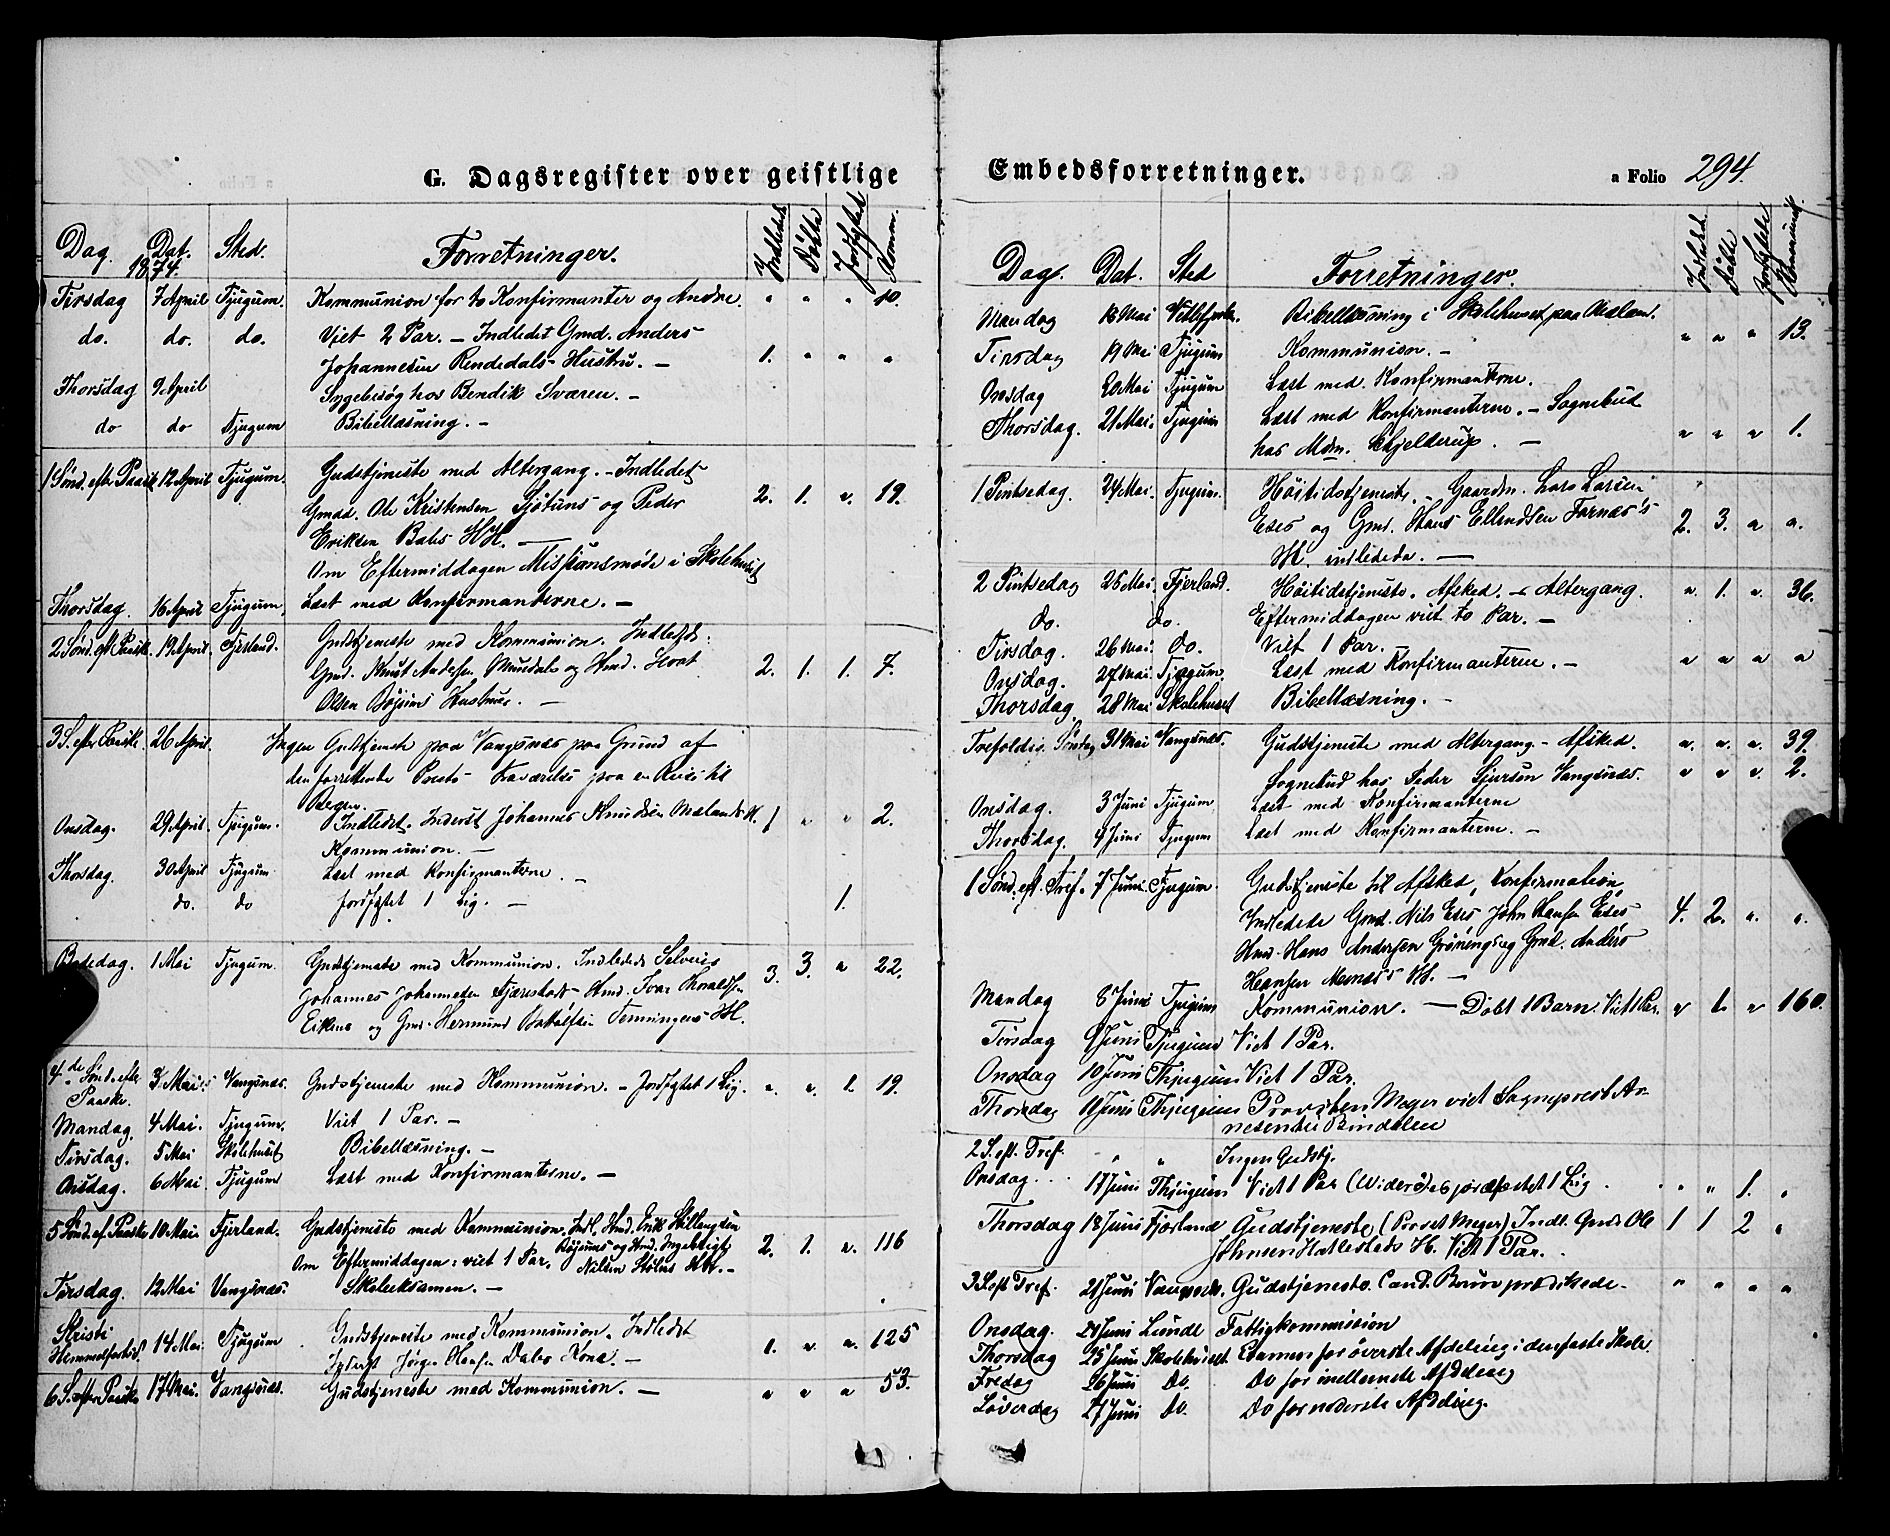 G. Dagsregister over geistlige
Dag. Dat. Sted. Forretninger. Indledet Døbte Jordfæstet Komm.
1874.
Tirsdag 7 April Tjugum. Kommunion for to Konfirmanter og Andre. " " " 10.
do. do. do. Viet 2 Par. — Indledet Gmd. Anders
Johannesen Rendedals Hustru. — 1. " " "
Thorsdag 9 April Sygebesøg hos Bendik Sværen. —
do do Tjugum Bibellæsning. —
1 Sønd. efter Paaske 12 April Tjugum. Gudstjeneste med Altergang. — Indledet
Gmd. Ole Kristensen Sjøtuns og Peder 2. 1. " 19.
Eriksen Bales HH. —
Om Eftermiddagen Missionsmøde i Skolehuset
Thorsdag. 16 April Tjugum. Læst med Konfirmanterne. —
2 Sønd. eft. Paaske. 19 April. Fjerland. Gudstjeneste med Kommunion. Indledt:
Gmd. Knut Andersen Mundals og Hmd. 2. 1. 1. 7.
Olsen Bøjums Hustruer. —
3 S. efter Paaske. 26 April. Ingen Gudstjeneste paa Vangsnæs paa Grund af
den forrettende Præsts Fraværelse paa en Reise til
Bergen.
Onsdag. 29 April. Tjugum. Indledet. Inderst Johannes Knudsen Mælands H. 1 " " 2.
Kommunion. —
Thorsdag. 30 April Tjugum Læst med Konfirmanterne. —
do. do Jordfæstet 1 Lig. — 1.
Bededag. 1 Mai Tjugum. Gudstjeneste med Kommunion. Indledede Selveier
Johannes Johannesen Tjærestads Hmd. Ivar 3. 3. " 22.
Eikens og Gmd. Hermund Botolfsen Fenningens HH.
4de Sønd. efter 3 Mai Vangsnæs. Gudstjeneste med Kommunion. — Jordfæstet 1 Lig. " " 1. 19.
Paaske.
Mandag. 4 Mai. Tjugum. Viet 1 Par. —
Tirsdag. 5 Mai Skolehuset Bibellæsning. —
Onsdag. 6 Mai Tjugum Læst med Konfirmanterne. —
5 Sønd. ef. Paaske 10 Mai. Fjerland. Gudstjeneste med Kommunion. Indl. Hmd. Erik
Om Eftermiddagen: viet 1 Par. Bøjums og Hmd. Ingebrigt 2. 1. " 116
Nilsen Stølens HH. —
Tirsdag. 12 Mai Vangsnæs. Skoleeksamen. —
Kristi
Himmelfartsd. 14 Mai. Tjugum Gudstjeneste med Kommunion. Indledet
Inderst Jørgen Olsen Dales Kone. — 1. " " 125
6 S. efter Paaske 17 Mai. Vangsnæs. Gudstjeneste med Kommunion. — " " " 53.
Embedsforretninger. a Folio 294.
Dag. Dat. Sted Forretninger. Indledet Døbte Jordfæstede Kommunik.
Mandag 18 Mai Bibellæsning i Skolehuset paa Mæland.
Tirsdag 19 Mai Tjugum Kommunion. — " " " 13.
Onsdag 20 Mai Tjugum Læst med Konfirmanterne.
Thorsdag. 21 Mai. Tjugum Læst med Konfirmanterne. — Sognebud
hos Mdm. Skjelderup. — " " " 1.
1. Pintsedag. 24 Mai. Tjugum. Høitidstjeneste. Gaardm. Lars Larsen
Eses og Gmd. Hans Ellendsen Farnæs's 2. 3. " ".
H. indledede. —
2 Pintsedag 25 Mai. Fjerland. Høitidstjeneste. Afsked. — Altergang. " 1. " 36.
Do. do. Eftermiddagen viet to Par. —
Tirsdag. 26 Mai. Do. Viet 1 Par.
Onsdag. 27 Mai. Tjugum. Læst med Konfirmanterne. — " " " "
Thorsdag. 28 Mai Skolehuset Bibellæsning. —
Trefoldis. Søndag 31 Mai Vangsnæs. Gudstjeneste med Altergang — Afsked. " " " 39.
Sognebud hos Peder Sjursen Vangsnæs. " " " 2.
Onsdag. 3 Juni Tjugum Læst med Konfirmanterne
Thorsdag. 4 Juni Tjugum Læst med Konfirmanterne. —
1 Sønd. eft. Tref. 7 Juni Tjugum. Gudstjeneste til Afsked, Konfirmation,
Indledede Gmd. Nils Eses John Hansen Eses 4. 2. " "
Hmd. Hans Andersen Grønings og Gmd. Anders
Hansen Menæs's HH. —
Mandag 8 Juni Tjugum Kommunion. — Døbt 1 Barn. Viet 1 Par. " 1. " 160.
Tirsdag 9 Juni Tjugum Viet 1 Par.
Onsdag 10 Juni Thjugum Viet 1 Par.
Thorsdag 11 Juni Thjugum Provsten Meyer viet Sogneprest Ar-
nesen til Bindalen
2 S. eft. Tref. " " Ingen Gudstj.
Onsdag 17 Juni Thjugum Viet 1 Par (Widerøe) jordfæstet 1 Lig. " " 1. "
Thorsdag 18 Juni Fjørland Gudstjeneste (Provst Meyer) Indl. Gmd. Ole 1 1 2 "
Johnsen Hatlesteds H. Viet 1 Par.
3 S eft Tref. 21 Juni Vangsnæs. Gudstjeneste. Cand. Bruun prædikede — " " " "
Onsdag. 24 Juni Lunde Fattigkommission
Thorsdag 25 Juni Skolehuset. Examen for øverste Afdeling i den faste Skole.
Fredag 26 Juni Do. Do for mellemste Afdeling
Løverdag 27 Juni Do. Do for nederste Afdeling.